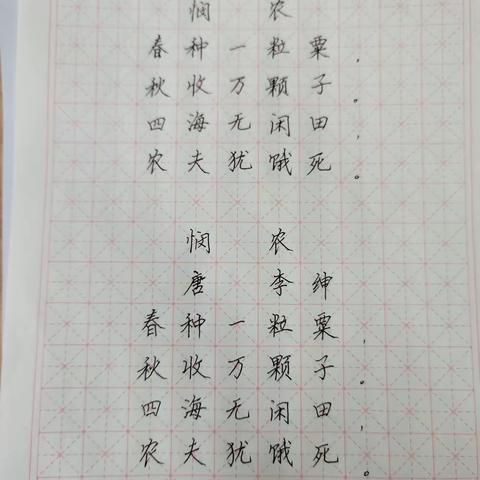 悯 农
春种一粒粟，
秋收万颗子。
四海无闲田，
农夫犹饿死。
悯 农
唐 李绅
春种一粒粟，
秋收万颗子。
四海无闲田，
农夫犹饿死。